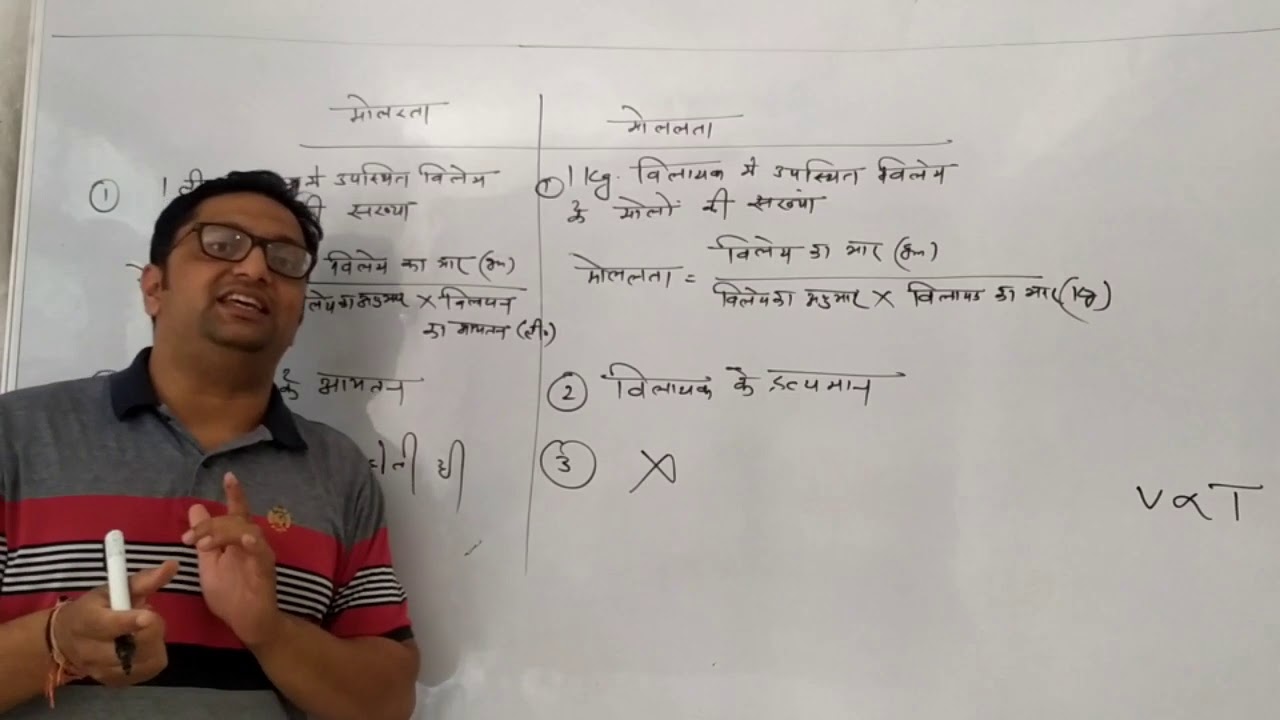 मोलरता
① 1 ली में उपस्थित विलेय
की संख्या
विलेय का भार (gm)
विलेय का अणुभार X विलयन
का आयतन (ली॰)
के आयतन
होती है
मोललता
① 1 Kg. विलायक में उपस्थित विलेय
के मोलों की संख्या
मोललता = विलेय का भार (gm)
विलेय का अणुभार X विलायक का भार (Kg)
② विलायक के द्रव्यमान
③ X
V ∝ T